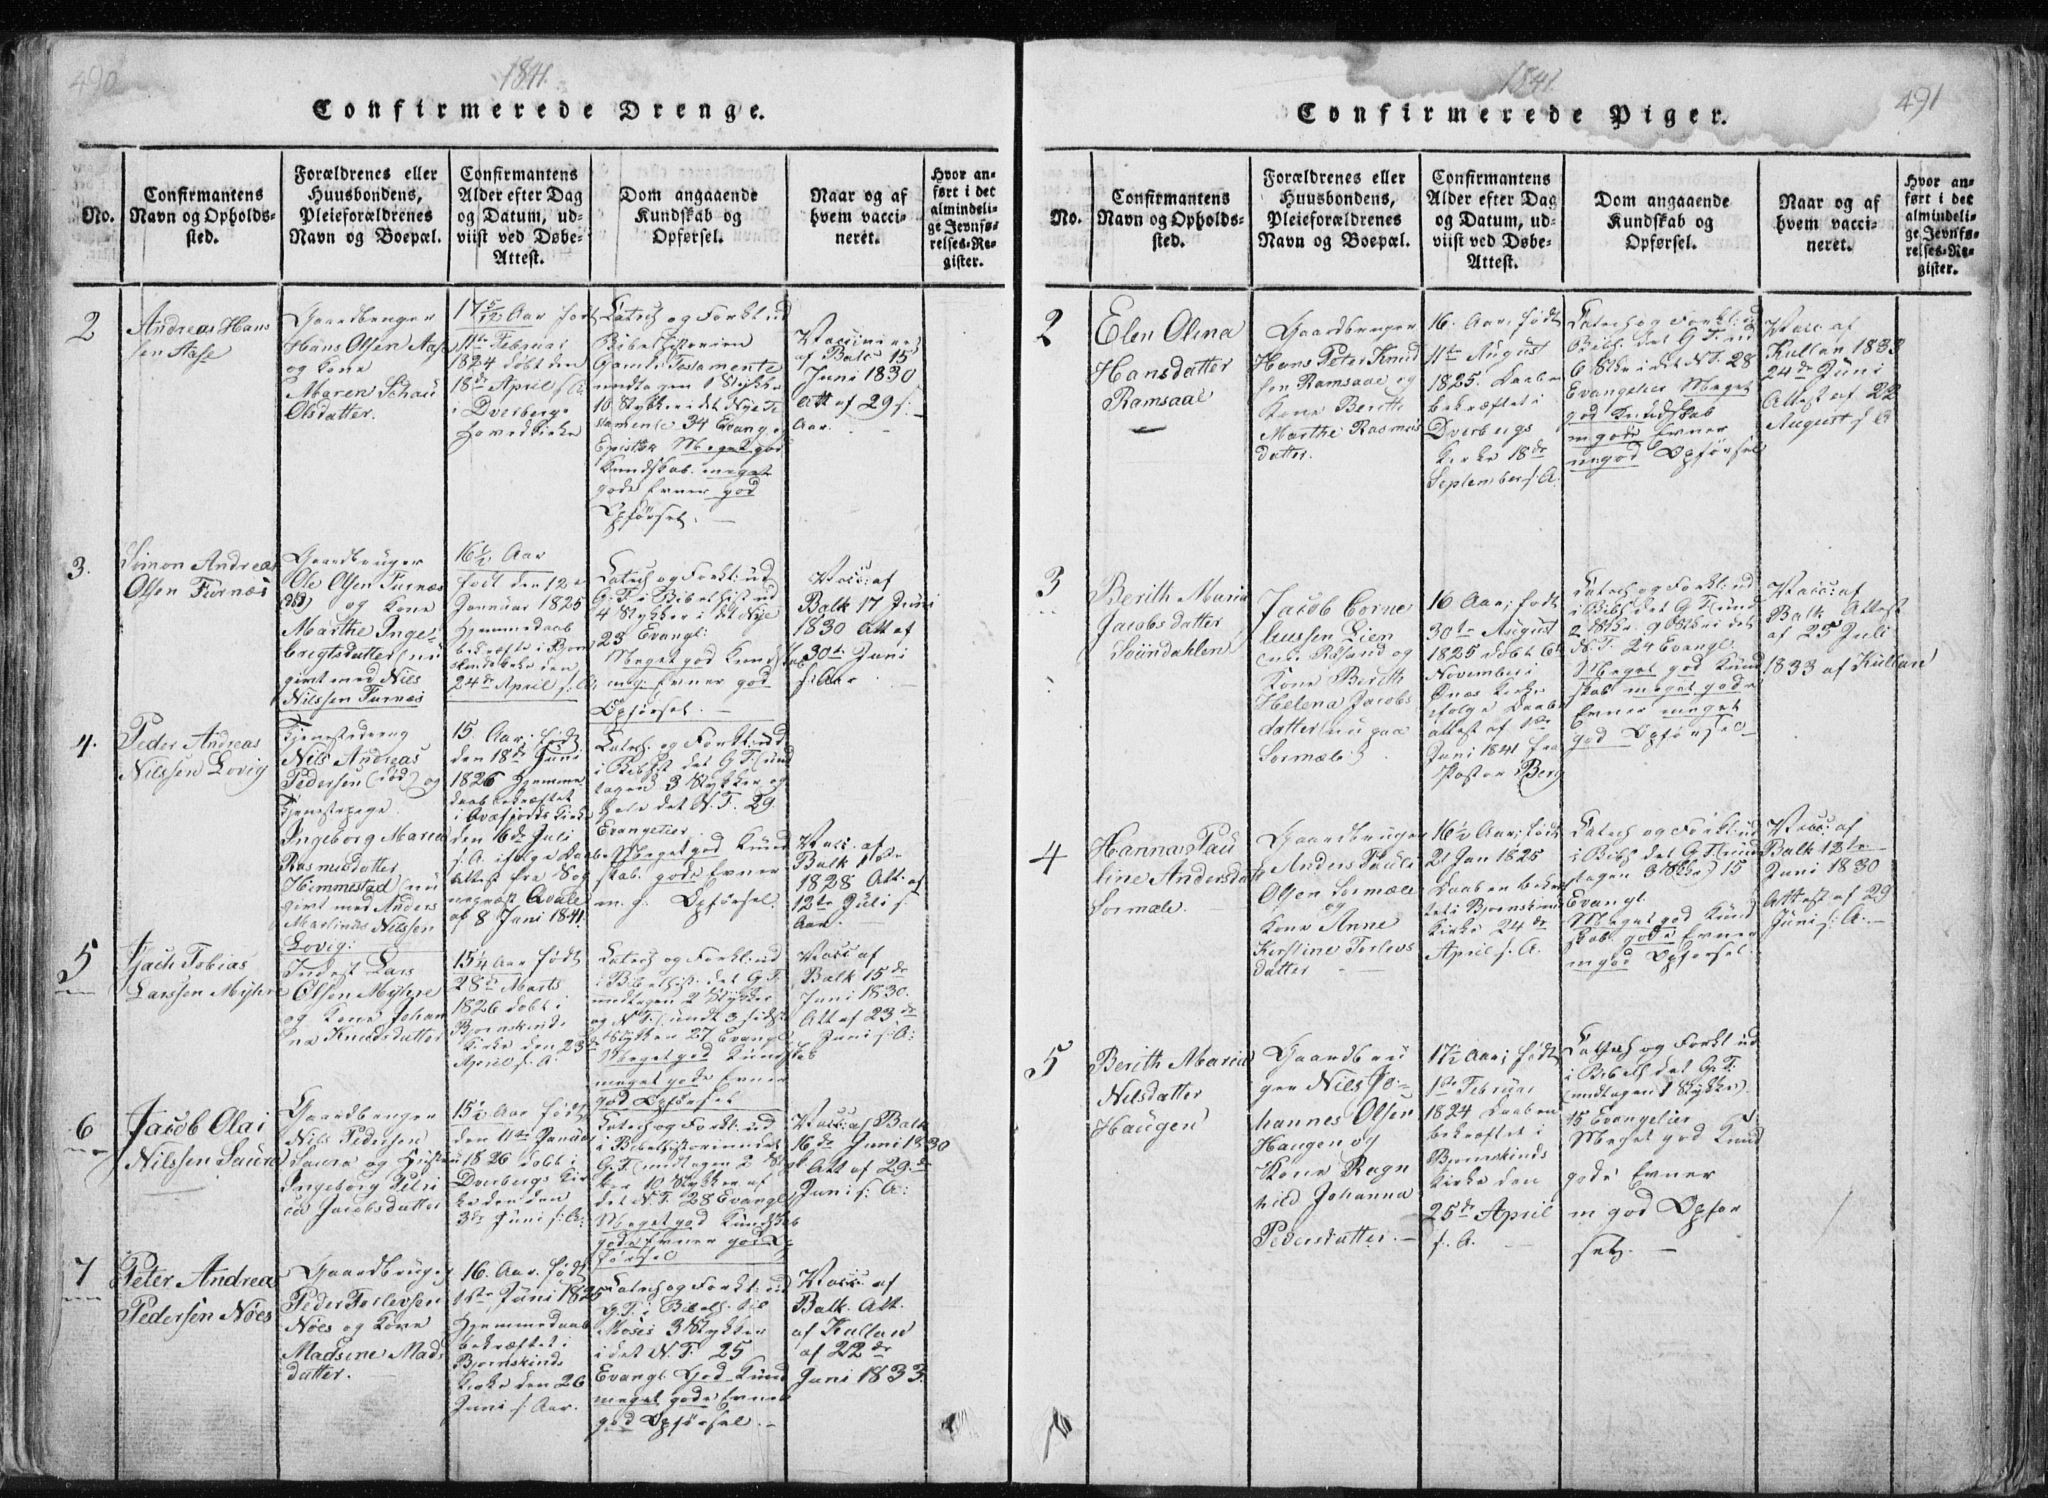 490
1841.
Confirmerede Drenge.
No.
Confirmantens
Navn og Opholds-
sted.
Forældrenes eller
Huusbondens,
Pleieforældrenes
Navn og Boepæl.
Confirmantens
Alder efter Dag
og Datum, ud-
viist ved Døbe-
Attest.
Dom angaaende
Kundskab og
Opførsel.
Naar og af
hvem vacci-
neret.
Hvor an-
ført i det
almindeli-
ge Jevnfø-
relses-Re-
gister.
2
Andreas Hans
sen Aase
Gaardbruger
Hans Olsen Aase
og Kone
Maren Schau
Olsdatter.
17 5/12 Aar født
11te Februar
1824 døbt den
18de April s. A.
i Dverbergs
Hovedkirke
Catech og Forkl: ud
Bibelhistorien
Gamle Testamente
undtagen 1 Stykke
10 Stykker i det Nye Te
stamente 34 Evang. og
Epistler Meget god
Kundskab. meget
gode Evner god
Opførsel. —
Vaccineret
af Balk 15
Juni 1830
Att af 29 s:
Aar.
3.
Simon Andreas
Olsen Furnæs
Gaardbruger
Ole Olsen Furnæs
(død) og Kone
Marthe Inge-
brigtsdatter (nu
givt med Nils
Nilssen Furnæs
16 1/2 Aar
født den 12te
Januar 1825
Hjemmedaab
bekræft i Bjørn
skinds kirke den
24de April s. A.
Catech og Forkl: ud
G. T. i Bibelhist ud
4 Stykker i det Nye
23 Evangl:
Meget god Kundskab
m. g. Evner god
Opførsel. —
Vacc: af
Balk 17 Juni
1830 Att af
30te Juni
s: Aar
4.
Peder Andreas
Nilssen Lovig
Tjenestedreng
Nils Andreas
Pedersen (død) og
Tjenestepige
Ingeborg Maria
Rasmusdatter
Himmestad (nu
givt med Anders
Martinus Nilssen
Lovig:
15. Aar. født
den 18de Juni
1826 Hjemme
daab bekræftet
i Qvæfjords Kirke
den 16de Juli
s. A. ifølge Daabs
Attest fra Sog
nepræst Qvale
af 8 Juni 1841.
Catech. og Forkl: ud
i Bibh det G T. (und
tagen 3 Stykker og
hele det N. T. 29
Evangelier.
Meget god Kund
skab. gode Evner
m. g. Opførsel.
Vacc. af
Balk
1828 Att. af
12te Juli s
Aar.
5
Zach Tobias
Larssen Myhre
Inderst Lars
Olsen Myhre
og Kone Johan
na Knudsdatter
15 1/4 Aar født
28de Marts
1826 døbt i
Bjørnskinds
Kirke den 23de
April s. A.
Catech og Forkl: ud
i Bibelhist. det G T.
undtagen 2 Stykker
og N. T. (undt 3 sidste
Stykker 27 Evangl
Meget god Kundskab
meget gode Evner
god Opførsel
Vacc af
Balk 15de
Juni 1830.
Att af 23de
Juni s: A:
6
Jacob Olai
Nilssen Saura
Gaardbruger
Nils Pedersen
Saura og Hustru
Ingeborg Petri
cia Jacobsdatter
15 1/2 Aar født
den 11te Januar
1826 døbt i
Dverbergs Kir
ke den
3de Juni s: A:
Catech og Forkl: ud
i Bibelhistorien
G. T. (undtagen 2 Styk
ker 10 Stykker af
det N. T. 28 Evangl
Meget god Kundskab
gode Evner god Op
førsel
Vacc: af Balk
16de Juni 1830
Att af 29de
Juni s: A:
7
Peter Andrea
Pedersen Nöes
Gaardbruger
Peder Torlevsen
Nöes og Kone
Madsine Mads
datter.
16. Aar. født
16te Juni 1825
Hjemmedaab
bekræftet i
Bjørnskinds
Kirke den 26
Juni s: Aar.
Catech og Forkl: ud
G. T. i Bibelh. til
Moses 3 Stykker
i det N. T. 25
Evangl. God Kund
meget gode Evner
god Opførsel. —
Vacc. af
Balk. Att.
af Kullan
af 22de
Juni 1833.
491
1841.
Confirmerede Piger.
No.
Confirmantens
Navn og Opholds-
sted.
Forældrenes eller
Huusbondens,
Pleieforældrenes
Navn og Boepæl.
Confirmantens
Alder efter Dag
og Datum, ud-
viist ved Døbe-
Attest.
Dom angaaende
Kundskab og
Opførsel.
Naar og af
hvem vacci-
neret.
Hvor an-
ført i det
almindeli-
ge Jevnfø-
relses-Re-
gister.
2
Elen Olina
Hansdatter
Ramsaae
Gaardbruger
Hans Peter Knud
sen Ramsaae og
Kone Berith
Marthe Rasmus
datter.
16. Aar, født
11te August
1825. Daaben
bekræftet i
Dverbergs
Kirke 18de
September s. A.
Catech og Forkl: ud
Bibh. det G T. ud
6 Stkr i det N T. 28
Evangelier Meget
god Kundskab
m gode Evner
m. god Opførsel
Vacc. af
Kullan 1833
24de Juni
Attest af 22
August s A
3
Berith Maria
Jacobsdatter
Sündahlen
Jacob Corne
liussen Lien
og
Kone Berith
Helena Jacobs
datter (nu paa
Sormæle)
16 Aar, født
30te August
1825 døbt
November i
Øxnæs Kirke
ifølge Daabs
attest af
Juni 1841 fra
Pastor Berg
Catech og Forkl: ud
i Bibh det G T (und
2 Stkr. i det
N. T. 24 Evangl.
Meget god Kund
skab meget gode
Evner meget
god Opførsel
Vacc: af
Balk Attest
af 25 Juli
1833 af Kullan
4
Hanna Pau
line Andersdat
Sormæle.
Gaardbruger
Anders Pauli
Olsen Sormæle
og
Kone Anne
Kirstine Torlevs
datter —
16 1/2 Aar; født
21 Jan 1825
Daaben bekræf
tet i Bjørnskinds
Kirke 24de
April s. A.
Catech og Forkl: ud
i Bibh det G T. (und
tagen 3 Stkr) 15
Evangl.
Meget god Kund
skab gode Evner
m god Opførsel.
Vacc: af
Balk 12te
Juni 1830
Attest af 29
Juni s: A. —
5
Berith Maria
Nilsdatter
Haugen
Gaardbru
ger Nils Jo-
hannes Olsen
Haugen og
Kone Ragn
hild Johanna
Pedersdatter. —
17 1/2 Aar, født
1te Februar
1824 Daaben
bekræftet i
Bjørnskinds
Kirke den
25de April
s. A.
Catech og Forkl ud
i Bibelh det G. T.
(undtagen 1 Stykke)
15 Evangelier
Meget god Kund
gode Evner
m god Opfør
sel. —